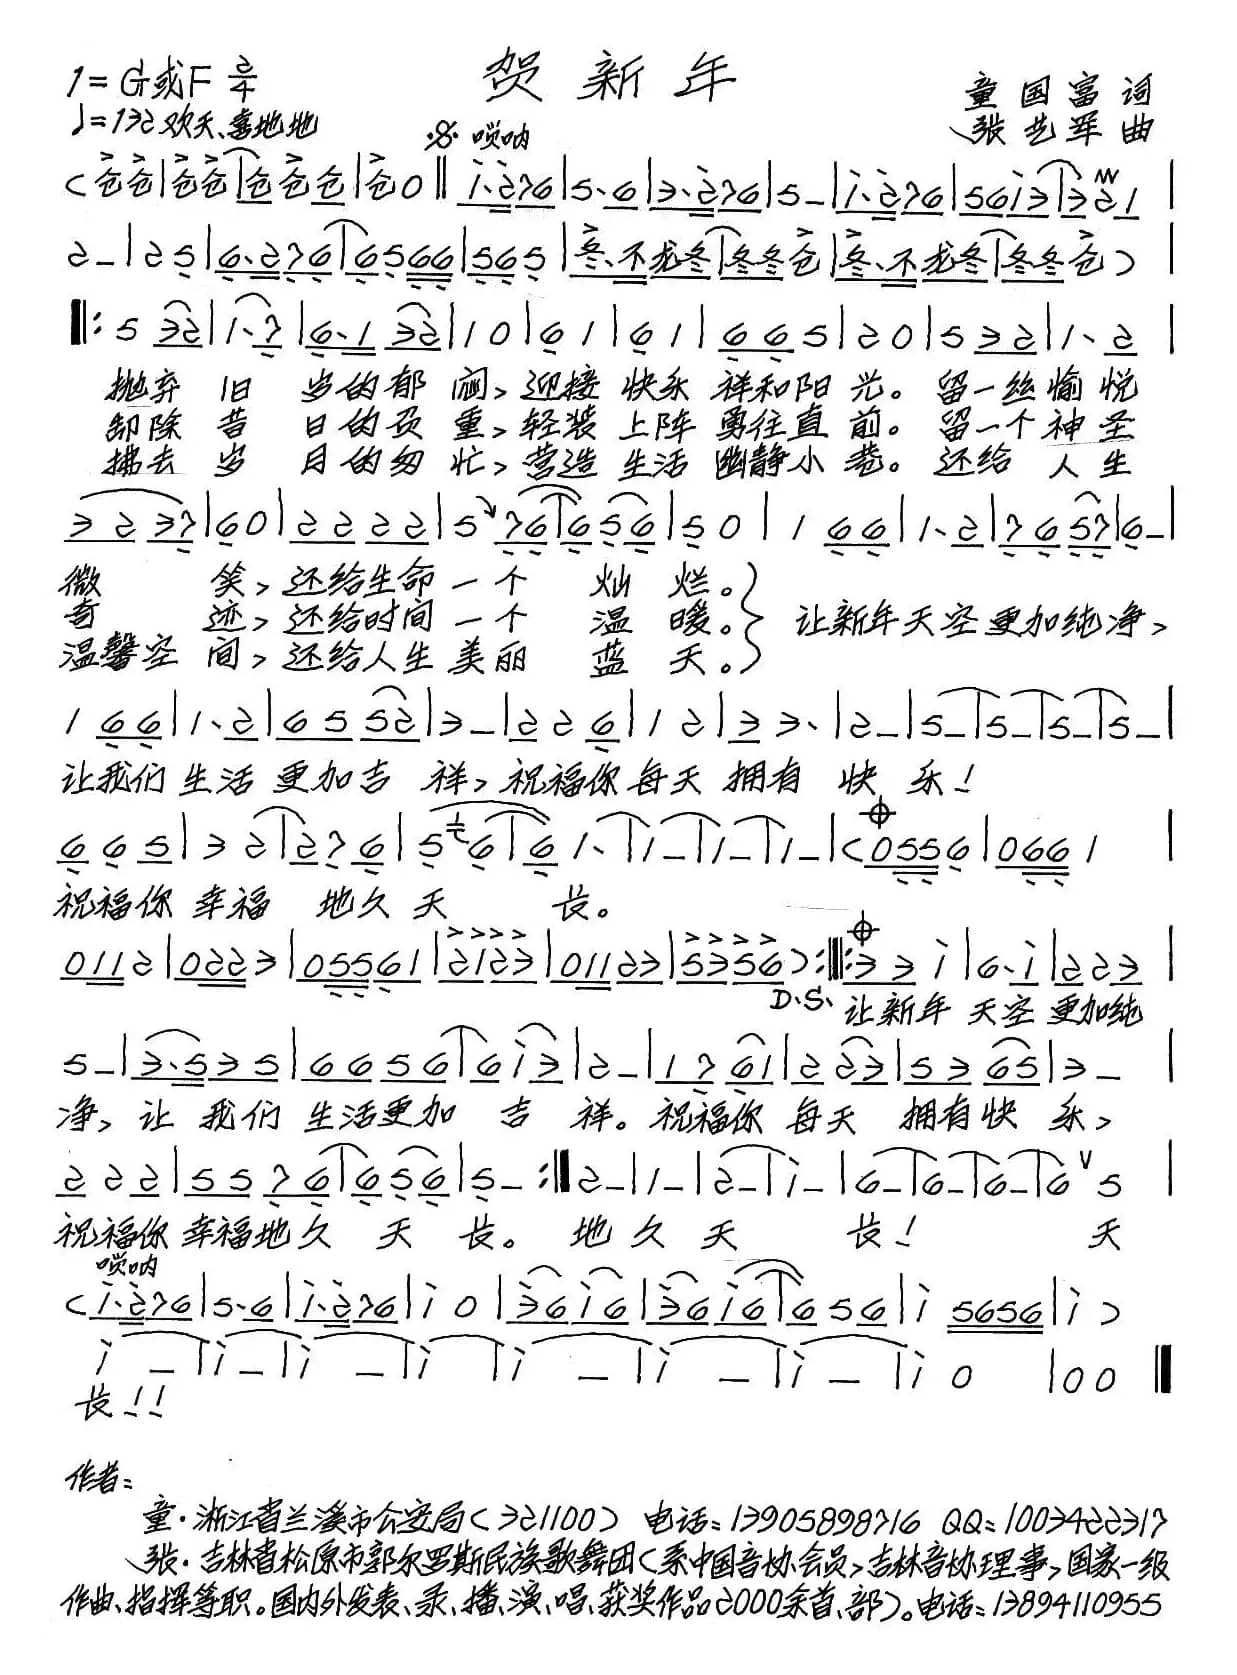 贺新年
1=G或F 2/4
童国富词
♩=132 欢天、喜地地
张艺军曲
唢呐
(仓仓|仓仓|仓仓仓|仓0‖i·276|5·6|3·276|5–|i·276|56i3|321|
2–|25|6·276|6566|565|冬·不龙冬|冬冬仓|冬·不龙冬|冬冬仓)|
‖:5 32|1·7|6·1 32|10|61|61|665|20|532|1·2|
抛弃旧岁的郁闷,迎接快乐祥和阳光。留一丝愉悦
卸除昔日的负重,轻装上阵勇往直前。留一个神圣
拂去岁月的匆忙,营造生活幽静小巷。还给人生
3237|60|2222|5 76|656|50|166|1·2|7657|6–|
微笑,还给生命一个灿烂。
奇迹,还给时间一个温暖。
让新年天空更加纯净,
温馨空间,还给人生美丽蓝天。
166|1·2|6552|3–|226|12|33·|2–|5–|5–|5–|5–|
让我们生活更加吉祥,祝福你每天拥有快乐!
665|32|276|56|61·|1–|1–|1–|(0556|0661|
祝福你幸福地久天长。
0112|0223|05561|2123|01123|5356):‖:33i|6·i|223|
D.S.
让新年天空更加纯
5–|3·535|6656|6i3|2–|1761|223|5365|3–|
净,让我们生活更加吉祥。祝福你每天拥有快乐,
222|5576|656|5–:‖2–|1–|2–|i–|6–|6–|6–|6 5|
祝福你幸福地久天长。地久天长!天
唢呐
(i·276|5·6|i·276|i0|36i6|36i6|656|i 5656|i)
i–|i–|i–|i–|i–|i–|i–|i–|i0|00‖
长!!
作者:
童·浙江省兰溪市公安局(321100) 电话:13905898716 QQ:1003422317
张·吉林省松原市郭尔罗斯民族歌舞团(系中国音协会员,吉林音协理事,国家一级
作曲、指挥等职。国内外发表、录、播、演、唱、获奖作品2000余首、部)。电话:13894110955